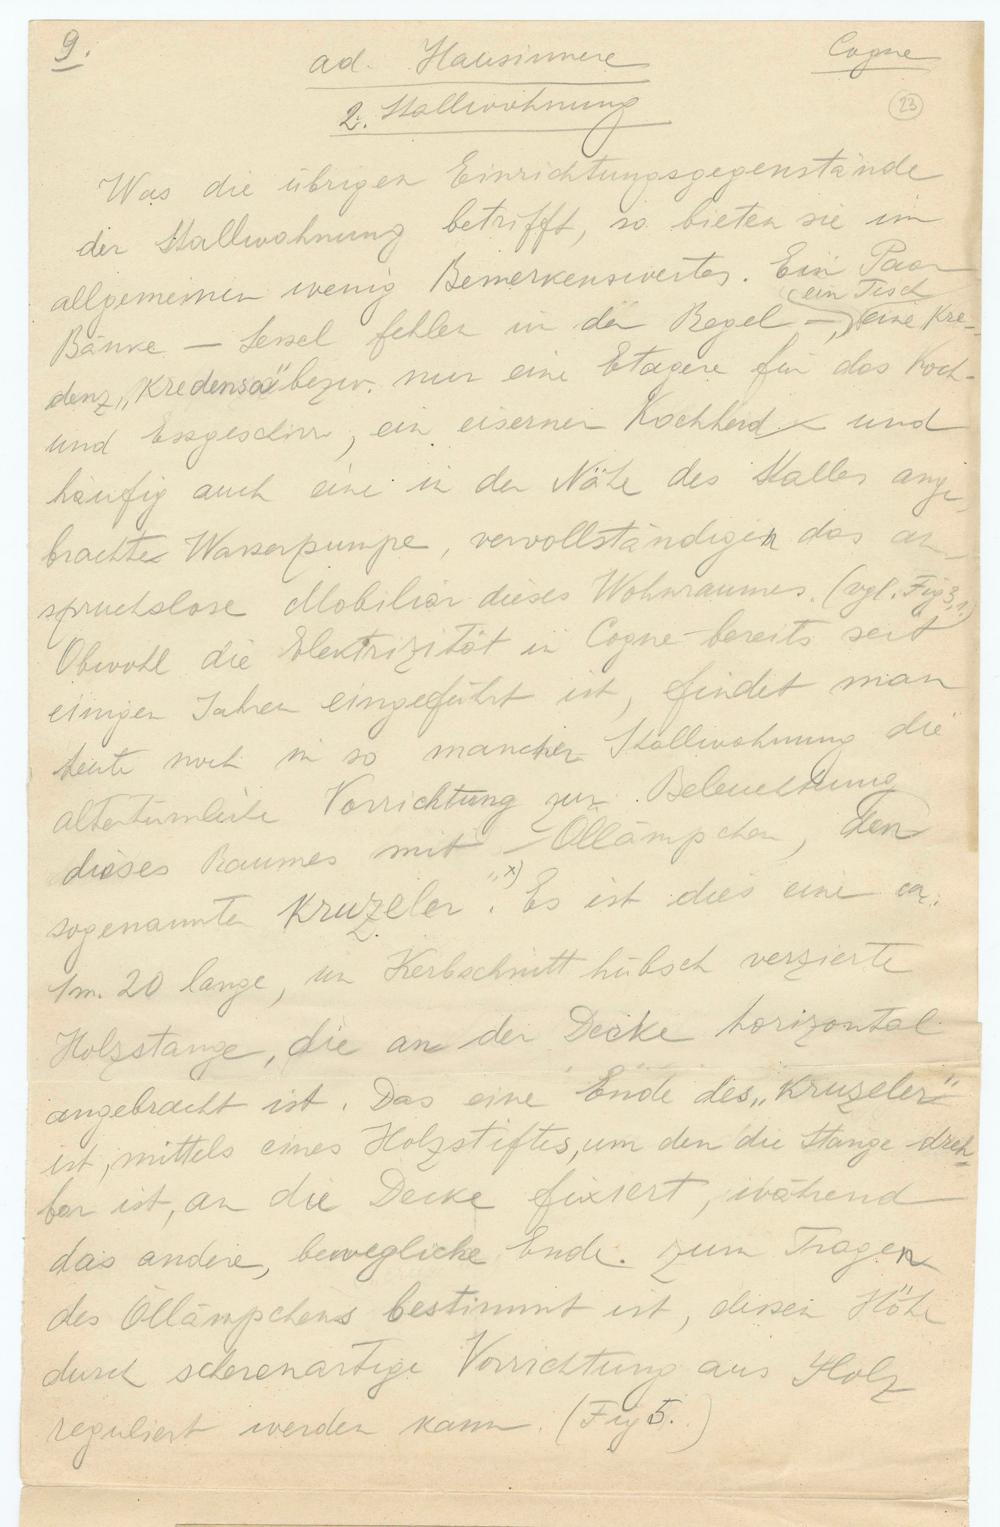 9.
ad. Hausinnere
Cogne
2. Stallwohnung
23
Was die übrigen Einrichtungsgegenstände
der Stallwohnung betrifft, so bieten sie im
allgemeinen wenig Bemerkenswertes. Ein Paar
Bänke — Sessel fehlen in der Regel —, ein Tisch, eine Kre-
denz, „Kredensa" bezw. nur eine Etagere für das Koch-
und Essgeschirr, ein eiserner Kochherd und
häufig auch eine in der Nähe des Stalles ange-
brachte Wasserpumpe, vervollständigen das an-
spruchslose Mobiliar dieses Wohnraumes. (vgl. Fig 3,1.)
Obwohl die Elektrizität in Cogne bereits seit
einigen Jahren eingeführt ist, findet man
heute noch in so mancher Stallwohnung die
altertümliche Vorrichtung zur Beleuchtung
dieses Raumes mit Öllämpchen, den
sogenannten Kruzeler".x) Es ist dies eine ca.
1m. 20 lange, in Kerbschnitt hübsch verzierte
Holzstange, die an der Decke horizontal
angebracht ist. Das eine Ende des „Kruzeler"
ist, mittels eines Holzstiftes, um den die Stange dreh-
bar ist, an die Decke fixiert, während
das andere, bewegliche Ende zum Tragen
des Öllämpchens bestimmt ist, dessen Höhe
durch scherenartige Vorrichtung aus Holz
reguliert werden kann. (Fig 5.)